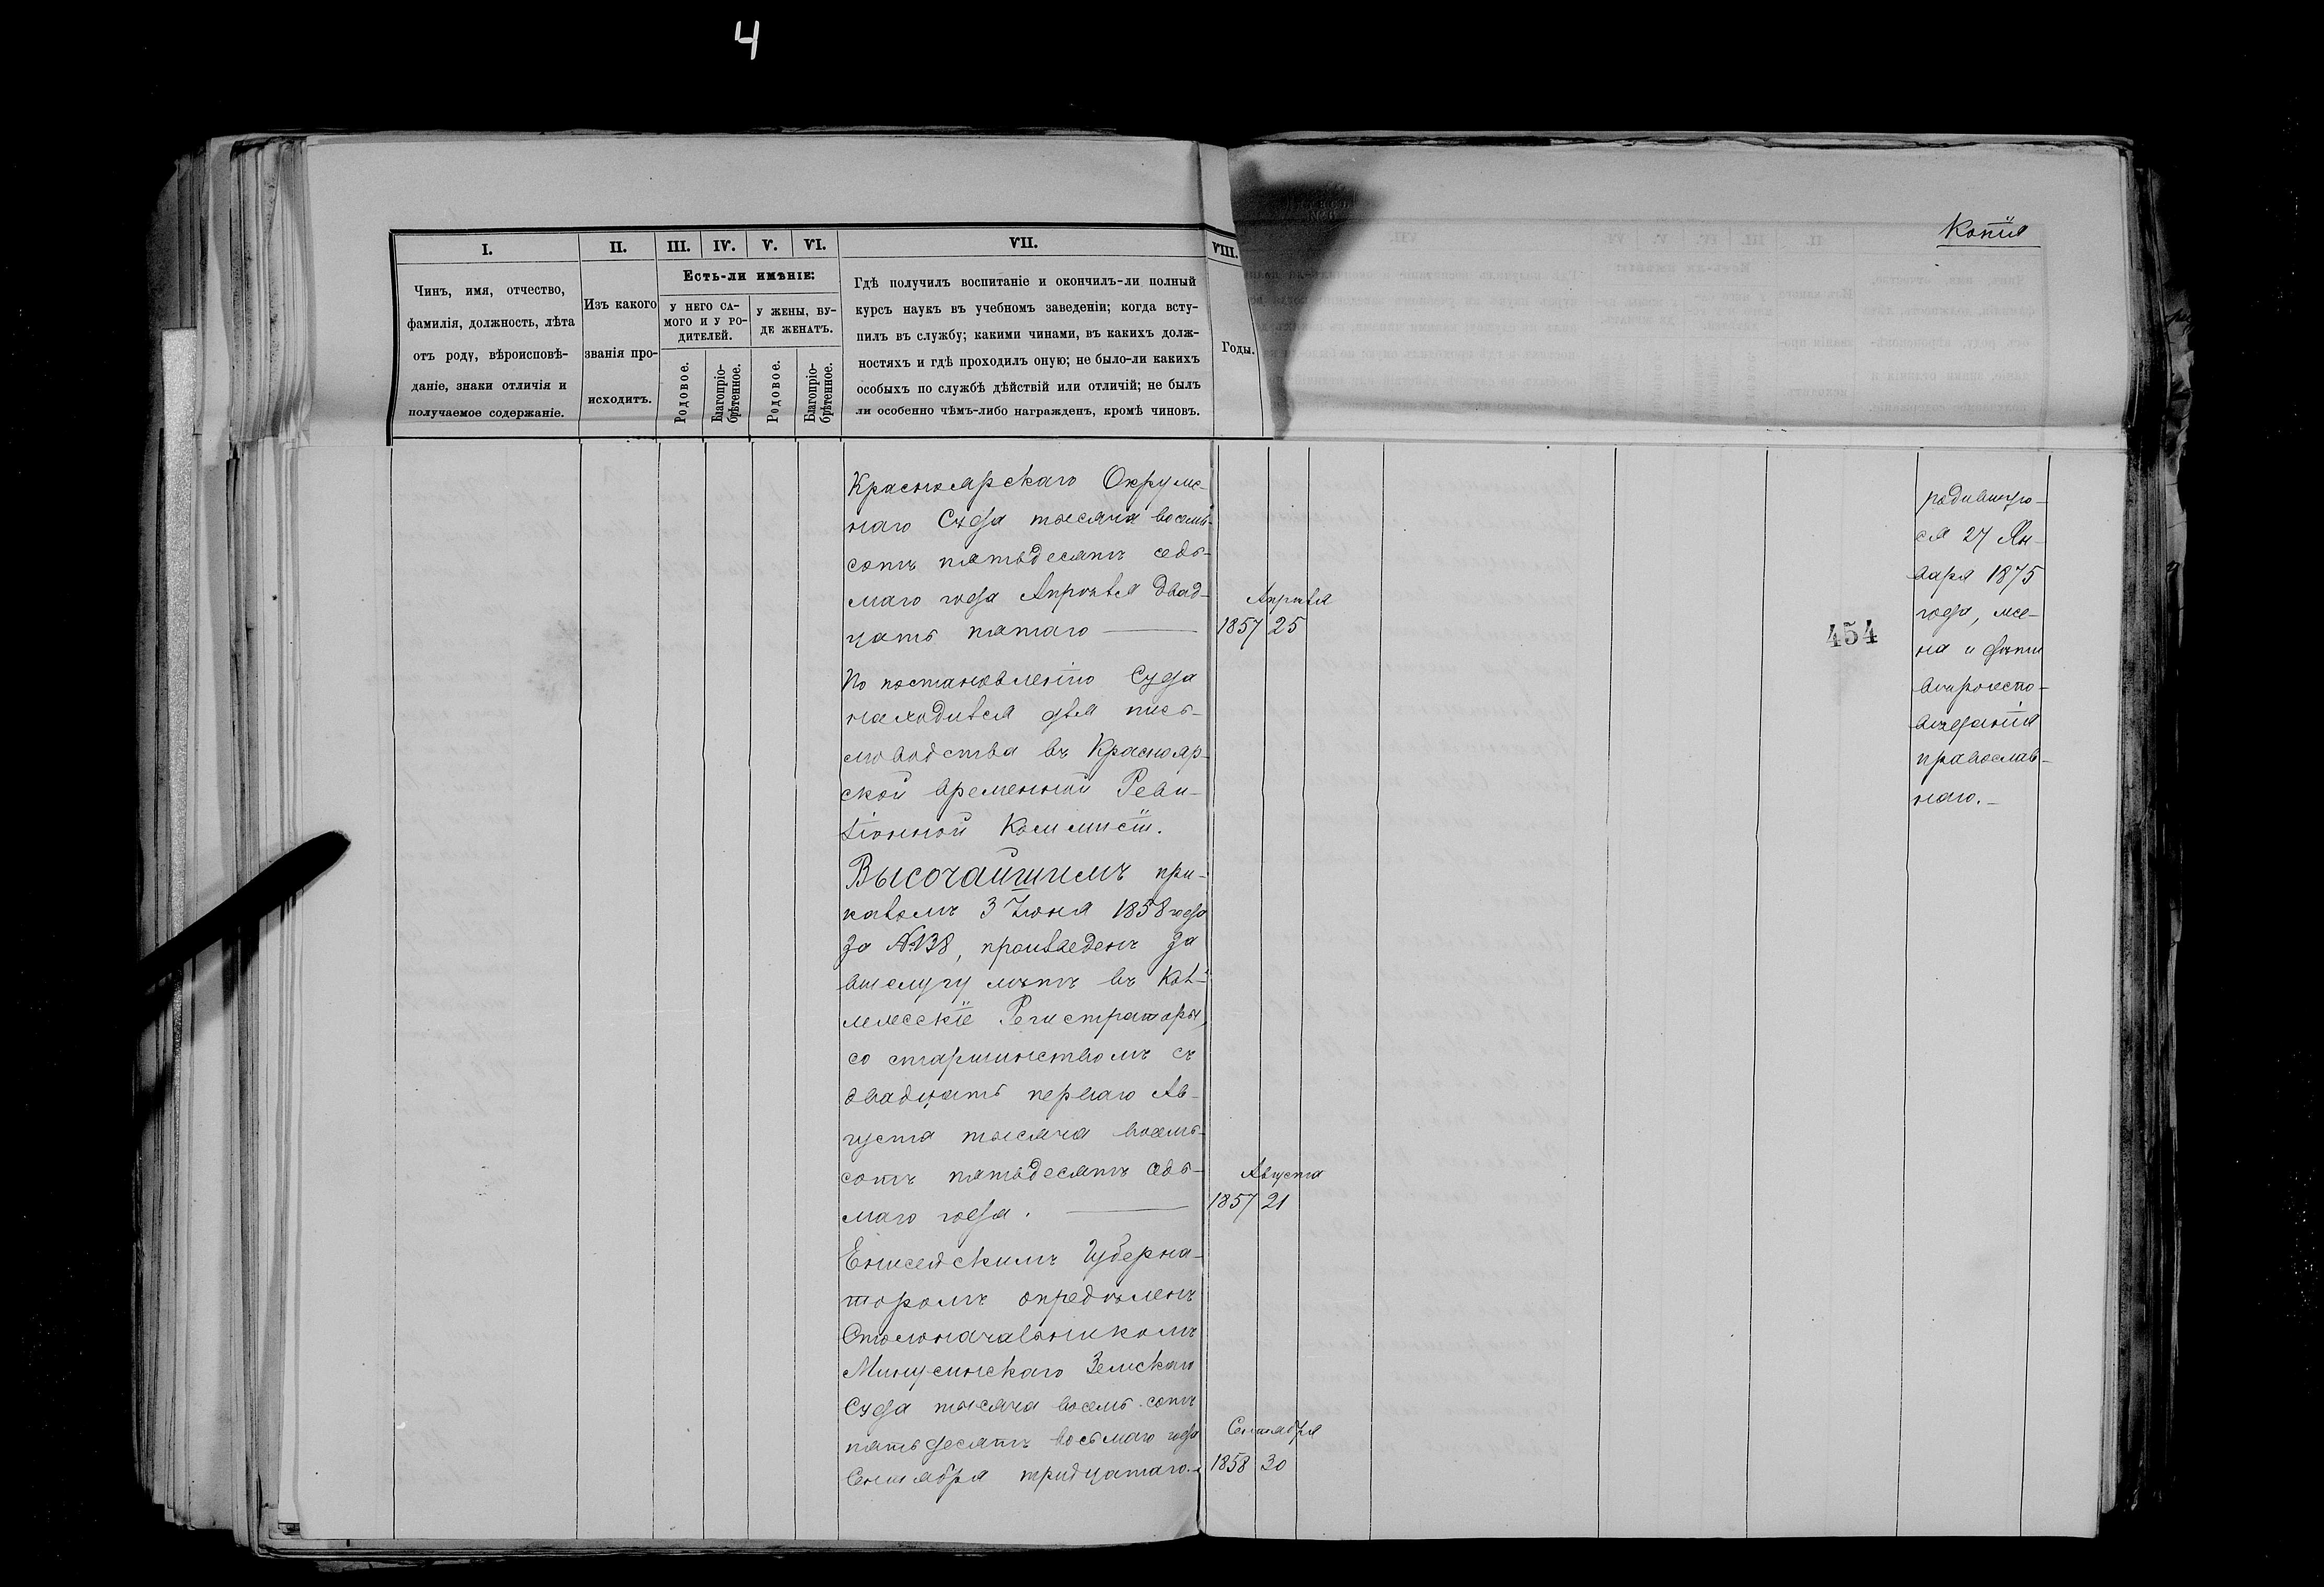 4
Копія
I.
II.
III.
IV.
V.
VI.
VII.
VIII.
Есть-ли имѣніе:
Чинъ, имя, отчество,
фамилія, должность, лѣта
отъ роду, вѣроисповѣ-
даніе, знаки отличія и
получаемое содержаніе.
Изъ какого
званія про-
исходитъ.
У НЕГО СА-
МОГО И У РО-
ДИТЕЛЕЙ.
У ЖЕНЫ, БУ-
ДЕ ЖЕНАТЪ.
Родовое.
Благопріо-
брѣтенное.
Родовое.
Благопріо-
брѣтенное.
Гдѣ получилъ воспитаніе и окончилъ-ли полный
курсъ наукъ въ учебномъ заведеніи; когда всту-
пилъ въ службу; какими чинами, въ какихъ долж-
ностяхъ и гдѣ проходилъ оную; не было-ли какихъ
особыхъ по службѣ дѣйствій или отличій; не былъ
ли особенно чѣмъ-либо награжденъ, кромѣ чиновъ.
Годы.
Красноярскаго Окруж-
наго Суда тысяча восемь-
сотъ пятьдесятъ седь-
маго года Апрѣля двад-
цать пятаго
Апрѣля
1857 25
По постановленію Суда
находился для пись-
моводства въ Краснояр-
ской временной Реви-
зіонной Коммисіи.
Высочайшимъ при-
казомъ 3 Іюня 1858 года
за №138, произведенъ за
выслугу лѣтъ въ Кол-
лежскіе Регистраторы,
со старшинствомъ съ
двадцать перваго Ав-
густа тысяча восемь-
сотъ пятьдесятъ седь-
маго года.
Августа
1857 21
Енисейскимъ Губерна-
торомъ опредѣленъ
Столоначальникомъ
Минусинскаго Земскаго
Суда тысяча восемь сотъ
пятьдесятъ восьмаго года
Сентября тридцатаго.
Сентября
1858 30
454
родившуго-
ся 27 Ян-
варя 1875
года, же-
на и дѣти
вѣроиспо-
вѣданія
православ-
наго.